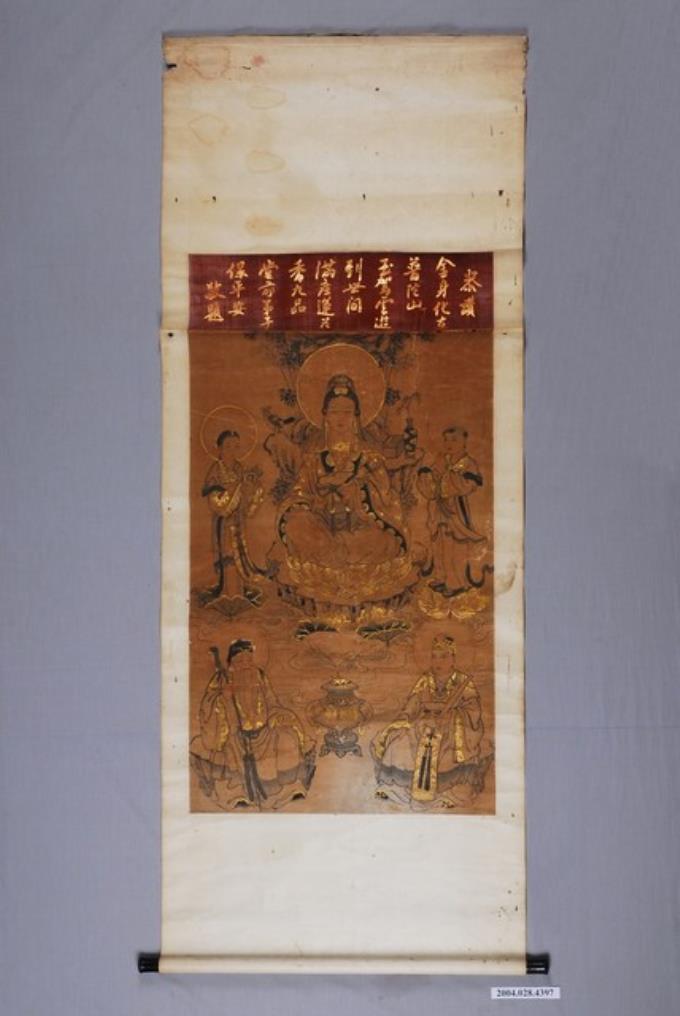 恭讚
金身化在
普陀山
玉駕雲遊
到世間
滿座蓮花
香九品
堂前弟子
保平安
敬題
2004.028.4397